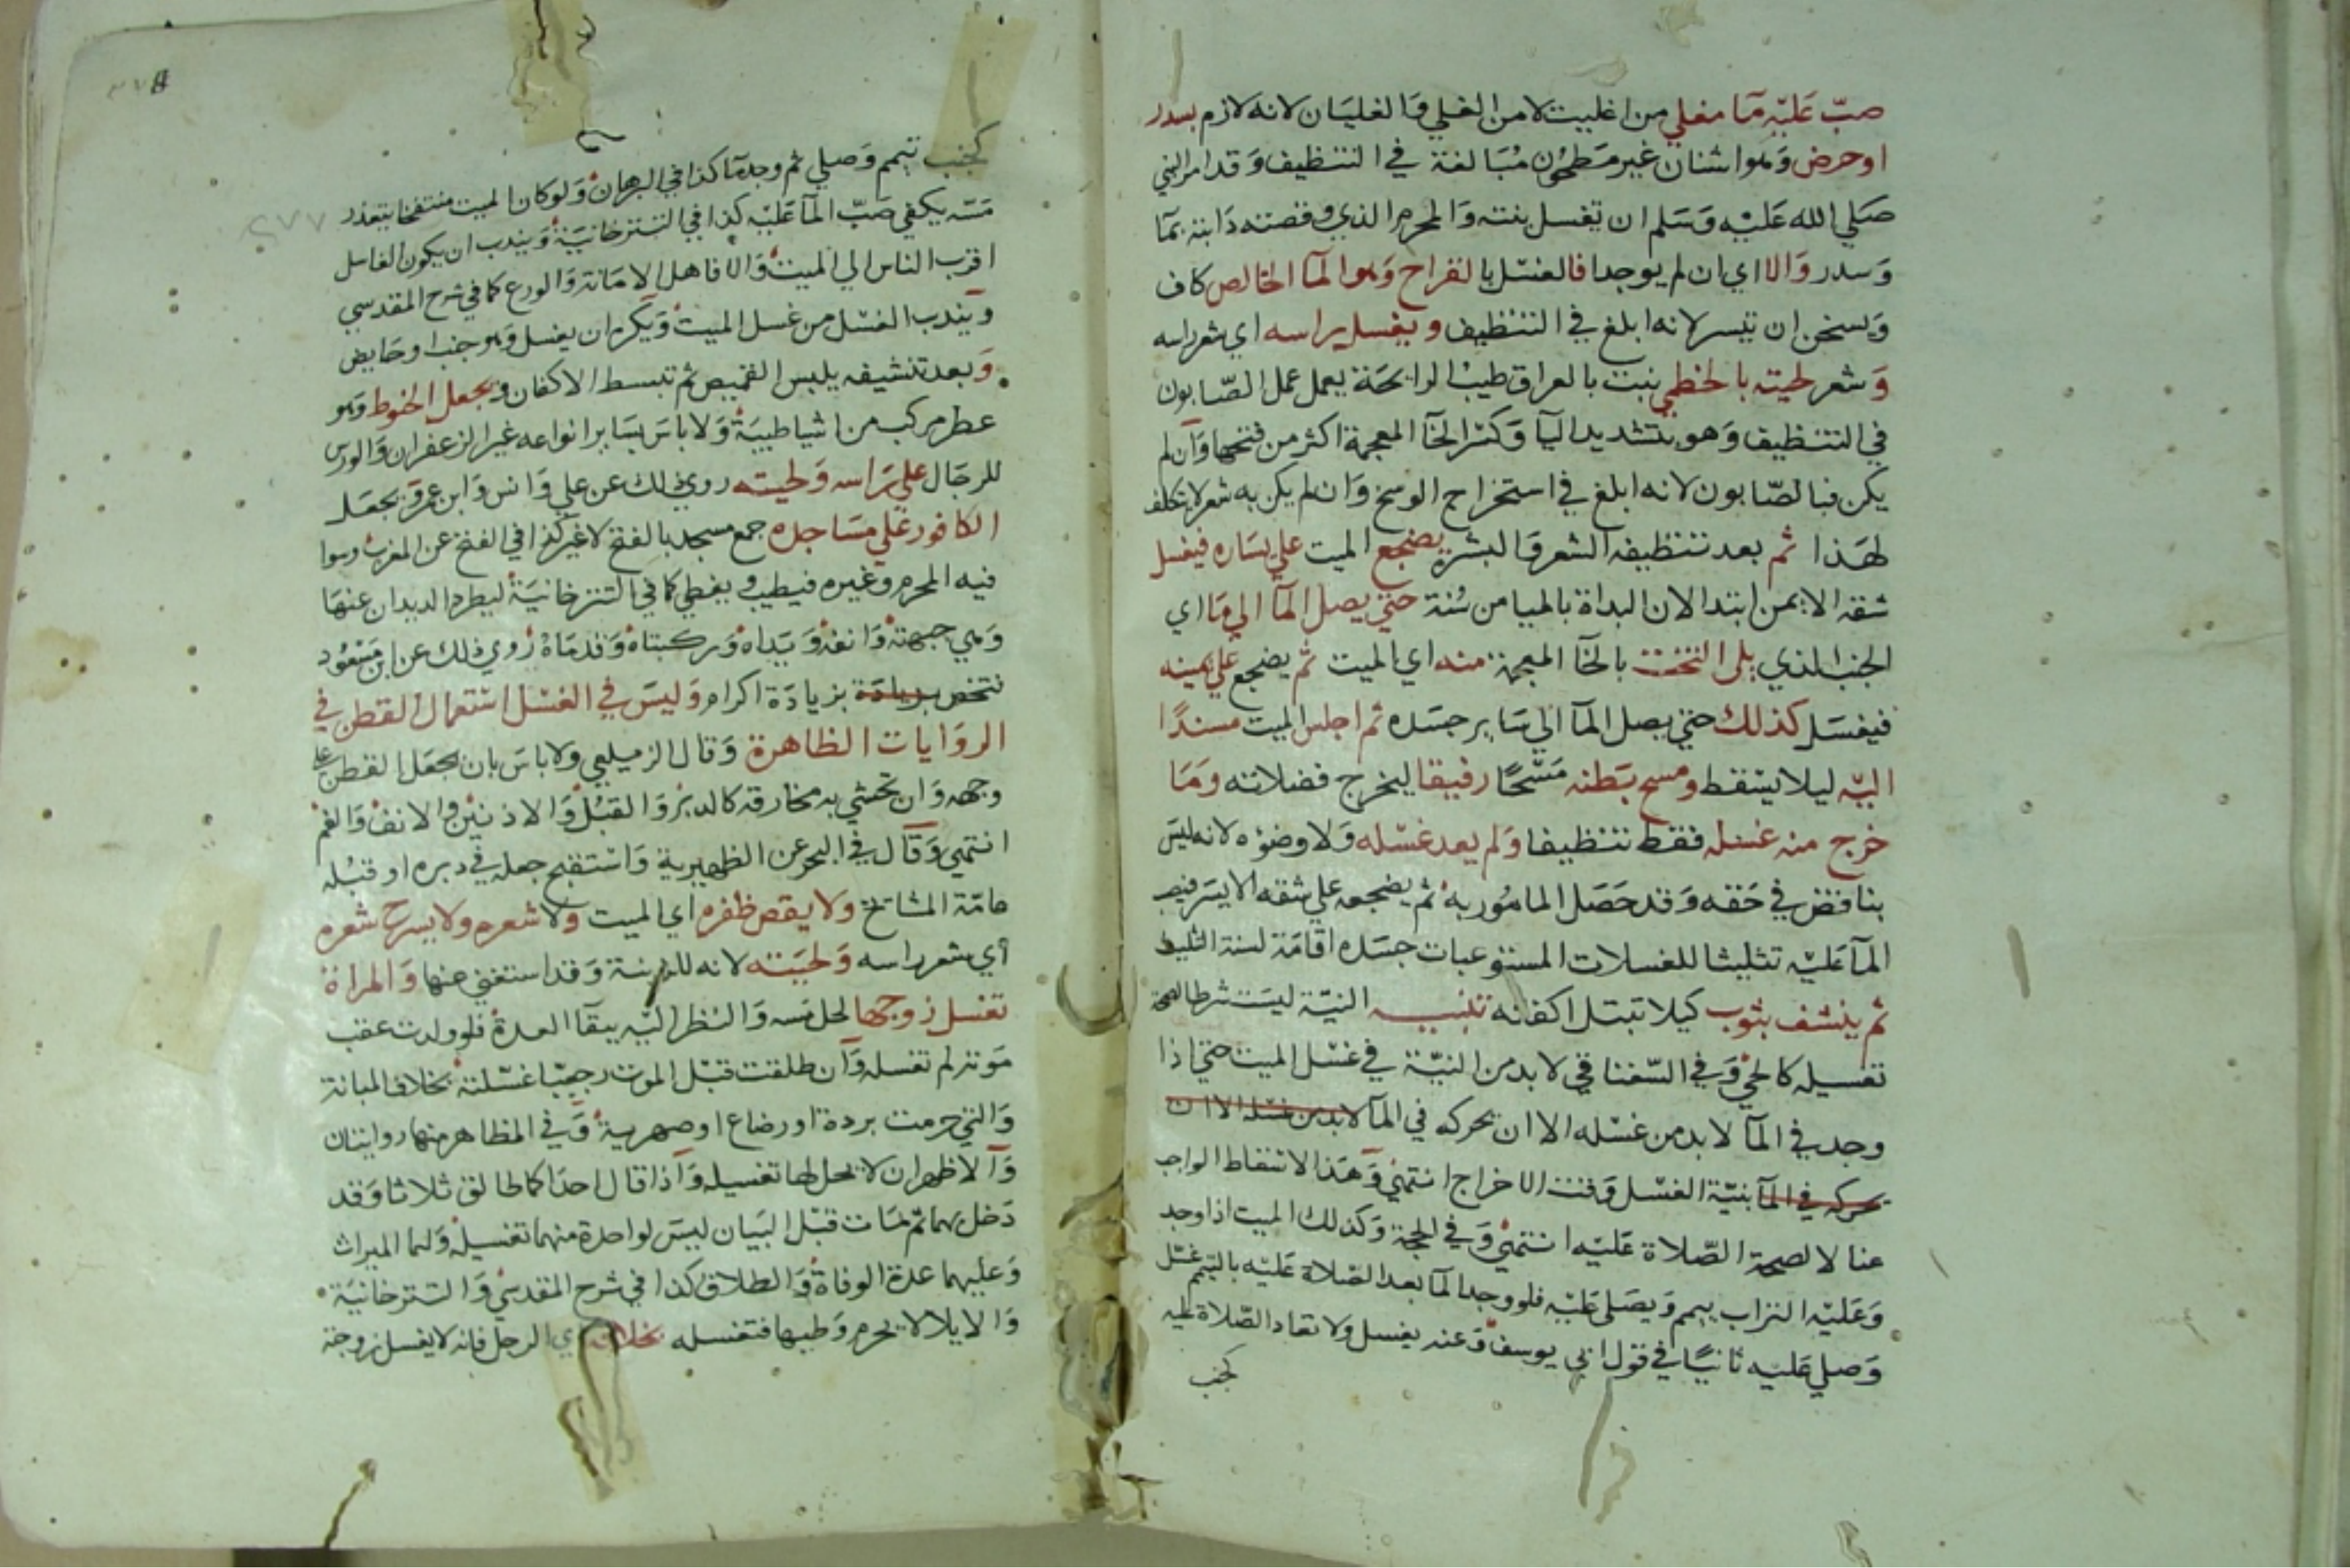 صبّ عَليْه مَا مغلي من اغليت لا من الغلي وَالغليَان لانه لازم بسدر
اوحرض وَهوا شنان غير مَطحون مُبَالغة في التنظيف وَقد امر النبي
صَلي الله عَليْه وَسَلم ان تغسل بنته وَالمحرم الذي وقصته دَابته بمَا
وَسدر وَالا اي ان لم يوجدا فالغسْل بالقراح وَهوا لمآ الخالص كاف
وَيسخن ان تيسر لانه ابلغ في التنظيف ويغسل راسه اي شعر راسه
وَشعر لحيته بالخطمي بنت بالعراق طيب الرايحَة يعمل عمل الصّابون
في التنظيف وَهو بتشديد اليآ وَكسْر الخآ المعجمة اكثر من فتحها وَآن لم
يكن فبالصّابون لانه ابلغ في استخراج الوسخ وَان لم يكن به شعر لا يتكلف
لهَذا ثم بعد تنظيف الشعر وَالبشرة يضجع الميت علي يسَاره فيغسل
شقه الايمن ابتدا لان البداة بالميامن سُنة حتي يصل المآ الي مَا اي
الجنب الذي يلى التخت بالخآ المعجمة منه اي الميت ثم يضجع علي يمينه
فيغسَل كذلك حتي يصل المآ الي سَاير جسَده ثم اجلس الميت مسندًا
اليْه ليلا يسْقط ومسح بَطنه مَسْحًا رفيقا ليخرج فضلاته وَمَا
خرج منه غسْله فقط تنظيفا وَلم يعد غسْله وَلا وضوُه لانه ليسَ
بناقض في حَقه وَقد حَصَل المامُور به ثم يضجعه علي شقه الايسَر فيصب
المآ عَليْه تثليثا للغسلات المستوعبات جسَده اقامَة لسنة التثليث
ثم ينشف بثوب كيلا تبتل اكفانه تنبيــه النيّة ليسَت شرطا لصحة
تغسيله كالحي وَفي السّغناقي لابد من النيّة في غسْل الميت حتي اذا
وجد في المآ لابد من غسْله الا ان يحركه في المآ لابد من غسْله الا ان
يحركه في المآ بنيّة الغسْل وَقت الاخراج انتهي وَهَذا لاسْقاط الواجب
عنا لا لصحة الصّلاة عَليْه انتهي وَفي الحجة وَكذلك الميت اذا وجد
وَعَليْه التراب ييمم وَيصَلى عَليْه فلو وجد المآ بعد الصّلاة عَليْه بالتيمم غسّل
وَصلي عَليه ثانيًا في قول ابي يوسف وَعنه يغسل ولا تعاد الصّلاة عليه
كجنب
كجنب تيمم وَصلي ثم وجد مَآ كذا في البرهان وَلو كان الميت منتفخا يتعذر
مَسّه يكفي صَبّ المآ عَليْه كذا في التترخانيَة وَيندب ان يكون الغاسل
اقرب الناس الي الميت وَالا فاهل الامَانة وَالورع كما في شرح المقدسي
وَيندب الغسْل من غسل الميت وَيكره ان يغسل وَهو جنب او حَايض
وَبعد تنشيفه يلبس القميص ثم تبسط الاكفان ويجعل الحنوط وَهو
عطر مركب من اشيا طيبَة وَلا باسَ بسَاير انواعه غير الزعفران وَالورس
للرجَال علي رَاسه وَلحيته روي ذلك عن علي وَانس وَابن عمر وَيجعَل
الكافور علي مسَاجده جمع مسجد بالفتح لا غير كذا في الفتح عن المغرب وسوا
فيه المحرم وغيره فيطيب ويغطي كما في التترخانيَة ليطرد الديدان عنهَا
وَهي جبهته وَانفه وَيَداه وَركبتاه وَقدمَاه رُوي ذلك عن ابن مَسْعُود
فتخص بزيادَة بزيادَة اكرام وَليسَ في الغسْل اسْتعمال القطن في
الروَايات الظاهرة وَقال الزيلعي ولا باسَ بان يجعَل القطن علي
وجهه وَان تحشي به مخارقه كالدبر وَالقبُل وَالاذنيْن والانف وَالفم
انتهي وَقال في البحر عن الظهيرية وَاسْتقبح جعله في دبره او قبُله
عامّة المشايخ ولا يقص ظفره اي الميت ولا شعره ولا يسرح شعره
أي شعر راسه وَلحيَته لانه للزينة وَقد استغني عنها وَالمراة
تغسل زوجها لحل مَسه وَالنظر اليْه ببقآ العدة فلو ولدت عقب
مَوته لم تغسله وَآن طلقت قبْل الموت رجعيّا غسّلته بخلاف المبانة
وَالتي حرمت بردة او رضاع او صهرية وَفي المظاهر منها روايتان
وَالاظهر ان لا يحل لها تغسيله وَآذا قال احدَاكما طالق ثلاثا وَقد
دَخل بهما ثم مَات قبْل البَيان ليسَ لواحدة منهما تغسيله وَلهما الميراث
وَعليهما عدة الوفاة وَالطلاق كذا في شرح المقدسي وَالتترخانيَة
وَالايلا لا يحرم وَطيها فتغسله بخلافه اي الرجل فانه لا يغسل زوجته